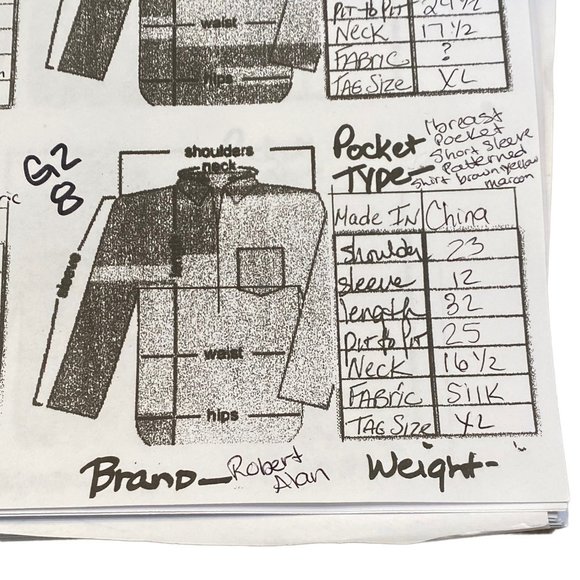 waist
hips
Pit to Pit 24 1/2
Neck 17 1/2
FABRIC ?
TAG Size XL
G2
8
shoulders
neck
sleeve
waist
hips
Pocket
TYPE-
1 breast
Pocket
Short sleeve
Patterned
Shirt brown yellow
maroon
Made IN China
shoulder 23
sleeve 12
length 32
Pit to Pit 25
Neck 16 1/2
FABRIC Silk
TAG Size XL
Brand- Robert
Alan
Weight-